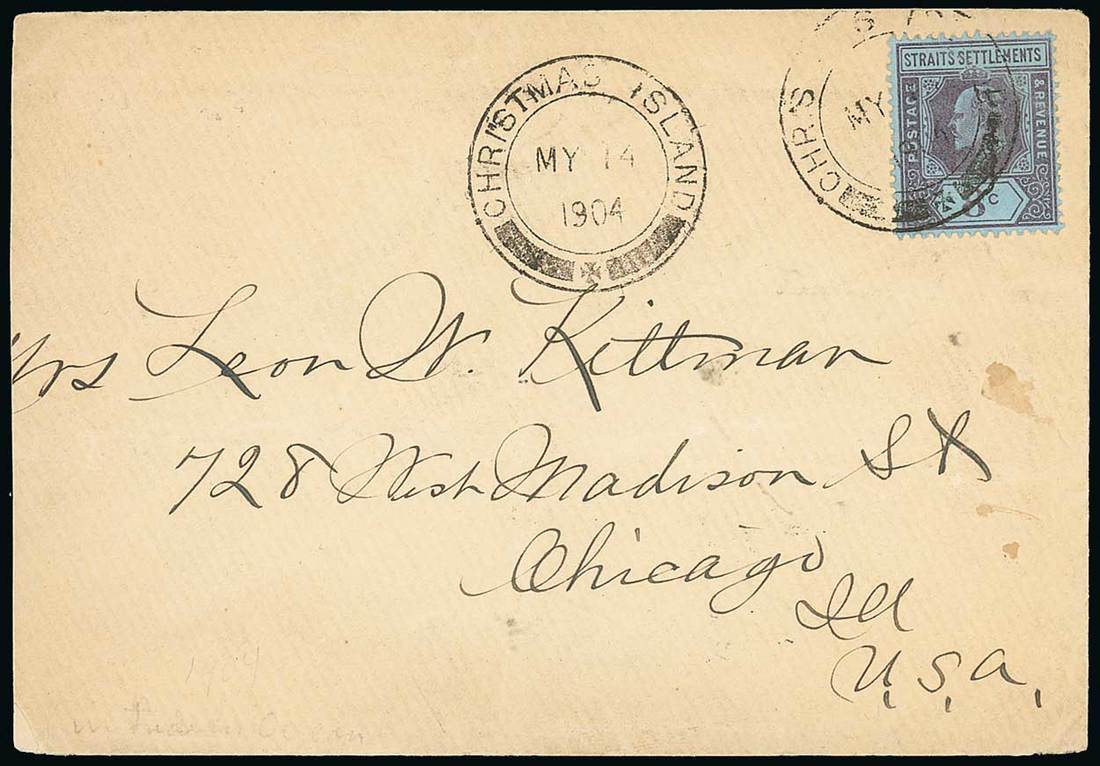 CHRISTMAS ISLAND
MY 14
1904
CHRIS
MY
STRAITS SETTLEMENTS
POSTAGE & REVENUE
8 C
Mrs Leon W. Kittman
728 West Madison St
Chicago
Ill
U.S.a.
1904
in Indian Ocean